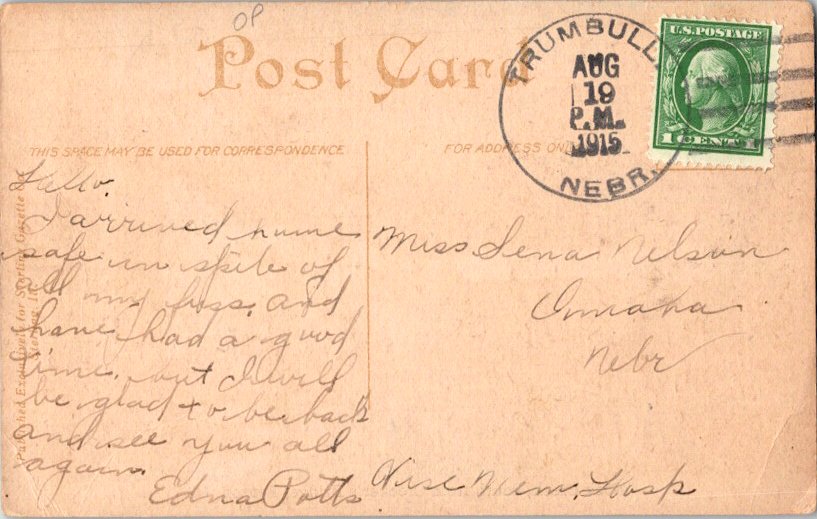 OP
Post Card
TRUMBULL
AUG
19
P.M.
1915
NEBR.
U.S. POSTAGE
1 CENT 1
THIS SPACE MAY BE USED FOR CORRESPONDENCE
FOR ADDRESS ONLY
Hello.
I arrived
safe in spite of
all my fuss, and
have had a good
time, but I will
be glad to be back
and see you all
again.
Edna Potts
Miss Lena Nelson
Omaha
Nebr
Wise Mem. Hosp
Published Exclusively for Gazette